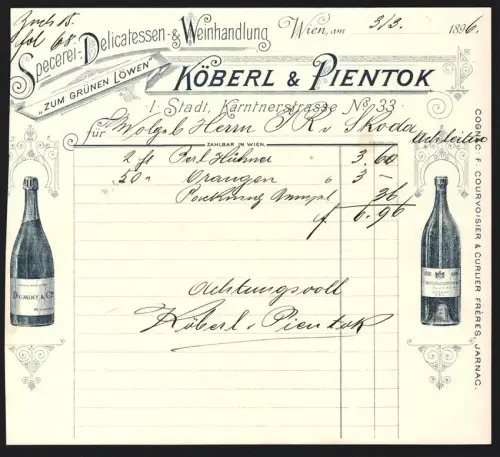 Specerei-, Delicatessen- & Weinhandlung
Wien, am 3/3. 1896.
"ZUM GRÜNEN LÖWEN"
KÖBERL & PIENTOK
I. Stadt, Kärntnerstrasse No 33
für Herrn Skoda
ZAHLBAR IN WIEN.
2 Hühner 3.60
50 Orangen 6 3 –
Packung 36
f 6.96
Achtungsvoll
Köberl & Pientok
DUMINY & Co
COGNAC F. COURVOISIER & CURLIER FRÈRES, JARNAC.